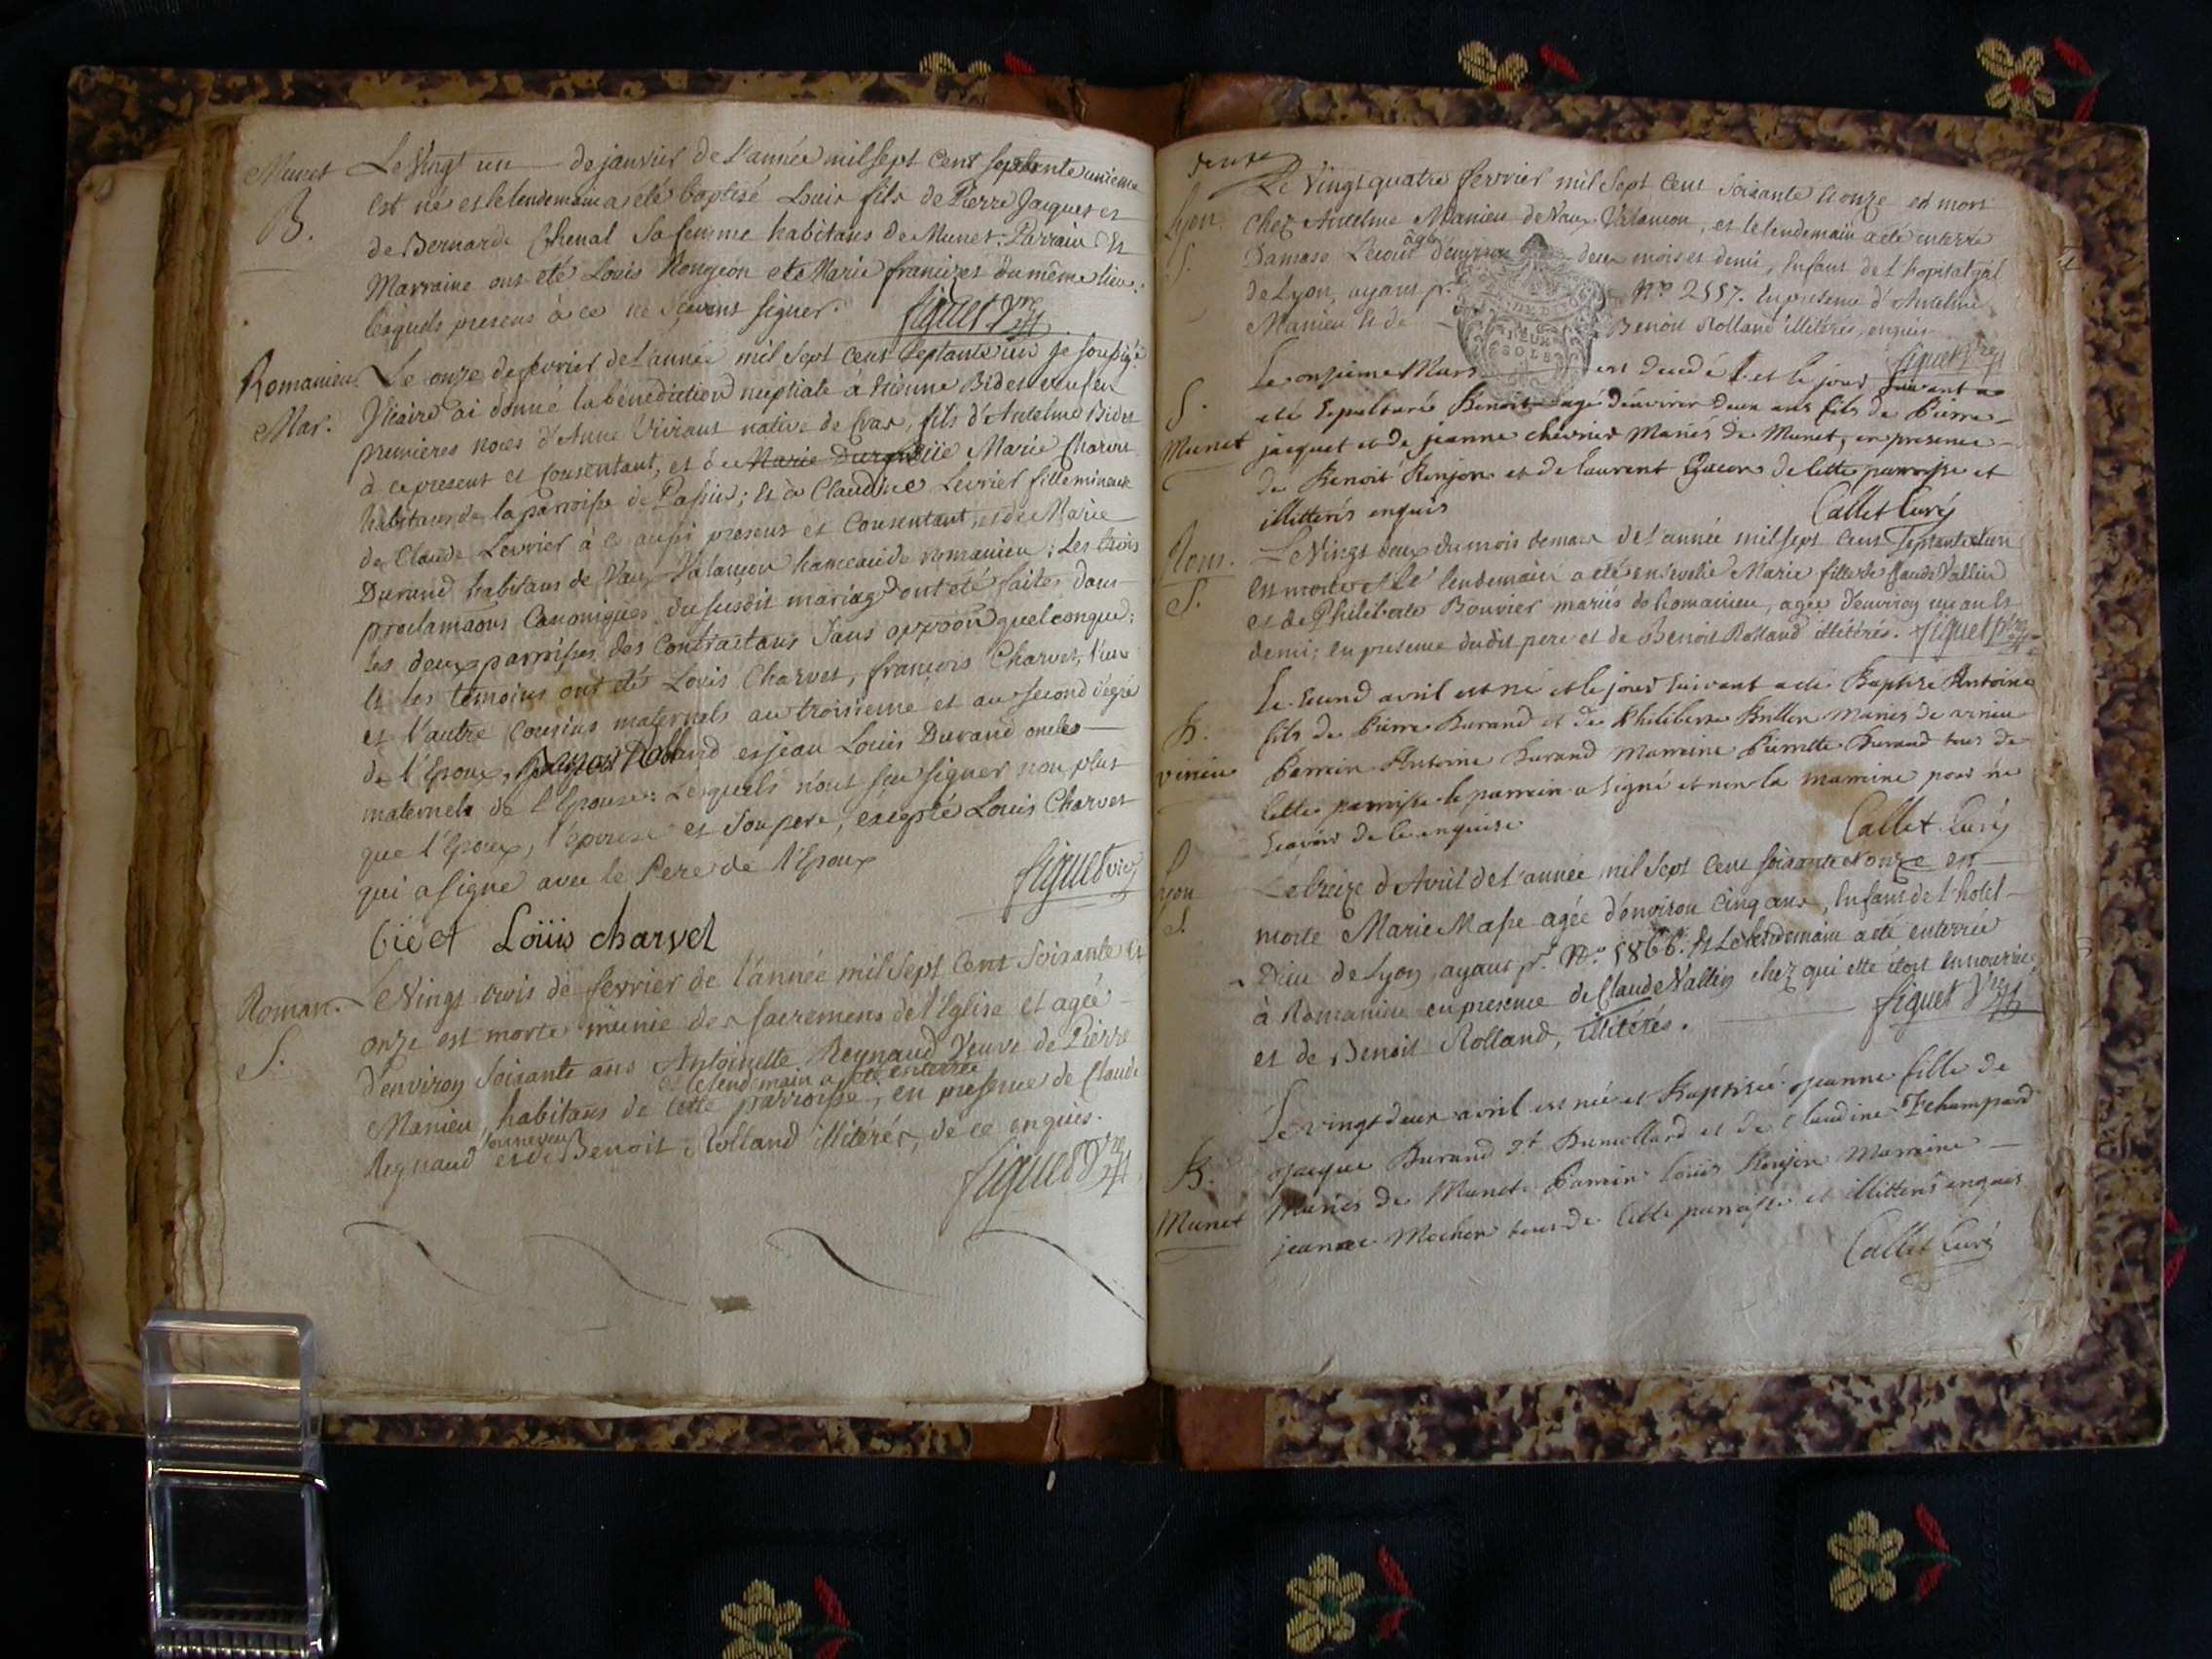 Munet Le Vingt un de janvier de l'année mil sept cent septante unieme
B. est né et le lendemain a été baptisé Louis fils de Pierre Jacquet et
de Bernarde Chenal sa femme habitans de Munet. Parrain et
Marraine ont été Louis Rongeon et Marie françizet du même lieu:
lesquels presens à ce ne sçavent signer. figuet Vre
Romanieu. Le onze de fevrier de l'année mil sept cent septante un je soussigé
Mar. Vicaire ai donné la bénédiction nuptiale à Etienne Bidet veuf en
premieres noces d'Anne Viviant native de Cras, fils d'Antelme Bidet
à ce present et consentant, et de Marie Durand Marie Charvet
habitans de la parroisse de Passin; et à Claudine Levrier fille mineure
de Claude Levrier à ce aussi present et consentant, et de Marie
Durand habitans de Vaux Valançon hameau de romanieu; Les trois
proclamaons canoniques du susdit mariage ont été faites dans
les deux parroisses des contractans sans oppoon quelconque:
et les témoins ont été Louis Charvet, françois Charvet, l'un
et l'autre cousins maternels au troisieme et au second dégré
de l'Epoux, Benoit Rolland et jean Louis Durand oncles
maternels de l'Epouse: Lesquels n'ont sçu signer non plus
que l'Epoux, l'épouse et son pere, excepté Louis Charvet
qui a signé avec le Pere de l'Epoux figuet vic
Louis charvet
Roman. Le Vingt trois de fevrier de l'année mil sept cent soixante et
S. onze est morte munie des sacremens de l'Eglise et agée
d'environ soixante ans Antoinette Reynaud Veuve de Pierre
et le lendemain a été enterrée
Manieu, habitans de cette parroisse, en presence de Claude
Reynaud son neveu et de Benoit Rolland illitérés, de ce enquis.
figuet Vre
Le Vingt quatre fevrier mil sept cent soixante et onze est mort
Lyon. chez Antelme Manieu de Vaux Valancon, et le lendemain a été enterré
S. Damase âgé d'environ deux mois et demi, enfant de l'hopital gal
de Lyon, ayant pr. No. 2557. En presence d'Antelme
Manieu et de Benoit Rolland illitérés, enquis
figuet Vre
Le onzieme Mars est decedé et le jour suivant a
S. été sepulturé Benoit agé d'environ deux ans fils de Pierre
Munet jacquet et de jeanne chevrier Mariés de Munet, en presence
de Benoit Ronjon et de laurent de cette parroisse et
illitterés enquis Callet Curé
Rom. Le Vingt deux du mois de mars de l'année mil sept cent septante et un
S. est morte et le lendemain a été ensevelie Marie fille de Claude Vallin
et de Philiberte Bouvier mariés de Romanieu, agée d'environ un an et
demi; en presence dudit pere et de Benoit Rolland illitérés. figuet Vre
Le second avril est né et le jour suivant a été Baptisé Antoine
B. fils de Pierre Durand et de Philiberte Brillon Mariés de virieu
virieu Parrain Antoine Durand Marraine Pierrette Durand tous de
cette parroisse le parrain a signé et non la marraine pour ne
scavoir de ce enquise Callet Curé
Lyon Le treize d'Avril de l'année mil sept cent soixante et onze est
S. morte Marie Masse agée d'environ cinq ans, Enfant de l'hotel
Dieu de Lyon, ayant pr. No. 5866. et Le lendemain a été enterrée
à Romanieu en presence de Claude Vallin chez qui elle étoit en nourrice
et de Benoit Rolland, illitérés. figuet Vre
Le vingt deux avril est née et Baptisée jeanne fille de
B. jacque Durand dt Dumollard et de Claudine Echampard
Munet Mariés de Munet. Parrain louis Ronjon Marraine
jeanne Mochon tous de cette parroisse et illitterés enquis
Callet Curé